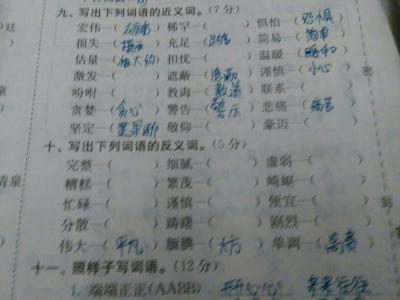 九、写出下列词语的近义词。(7分)
宏伟—( ) 稀罕—( ) 惧怕—(恐惧
损失—( ) 充足—( ) 简易—(简单
估量—(估大约) 担忧—( ) 温暖—(暖和
激发—( ) 遮蔽—(隐蔽) 谨慎—(小心
吩咐—( ) 教诲—(教导) 联系—(
贪婪—(贪心) 警告—(警示) 悲痛—(痛苦
坚定—( ) 敬仰—( ) 豪迈—(
十、写出下列词语的反义词。(5分)
完整—( ) 细腻—( ) 虚弱—(
糟糕—( ) 繁茂—( ) 崎岖—(
忙碌—( ) 谨慎—( ) 便宜—(
分散—( ) 踌躇—( ) 剧烈—(
伟大—(平凡) 腼腆—(大方) 单调—(高贵
十一、照样子写词语。(12分)
1. 端端正正(AABB)
清泉
密
封